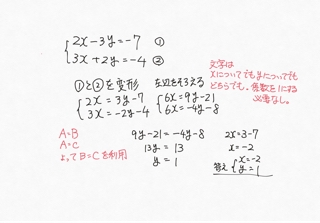 2x-3y=-7 ①
3x+2y=-4 ②
文字は
xについてでもyについてでも
どちらでも。係数を1にする
必要なし。
①と②を変形 左辺をそろえる
2x=3y-7
3x=-2y-4
6x=9y-21
6x=-4y-8
A=B
A=C
よってB=Cを利用
9y-21=-4y-8
13y=13
y=1
2x=3-7
x=-2
答え x=-2
y=1